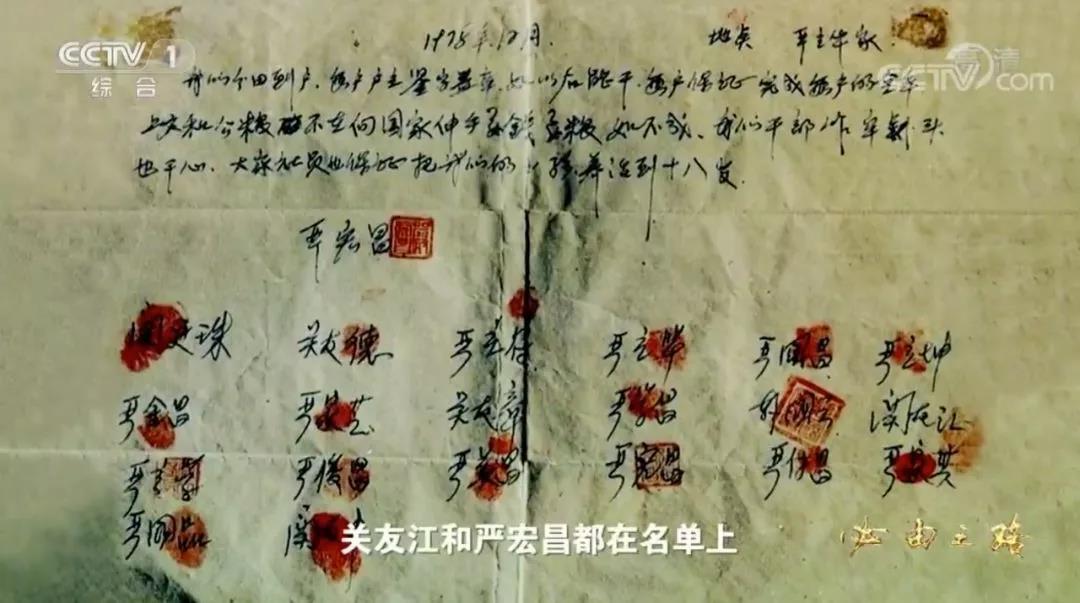 CCTV 1
综合
CCTV.com
高清
1978年12月. 地点 严立华家
我们分田到户,每户户主签字盖章,如以后能干,每户保证完成每户的全年
上交和公粮 不在向国家伸手要钱要粮 如不成、我们干部作牢刹头
也干心、大家社员也保证把我们的小孩养活到十八岁.
严宏昌
关廷珠 关友德 严立符 严立华 严国昌 严立坤
严金昌 严家芝 关友章 严学昌 韩国云 关友江
严立学 严俊昌 严美昌 严宏昌 严付昌 严家其
严国品 关友
关友江和严宏昌都在名单上
必由之路